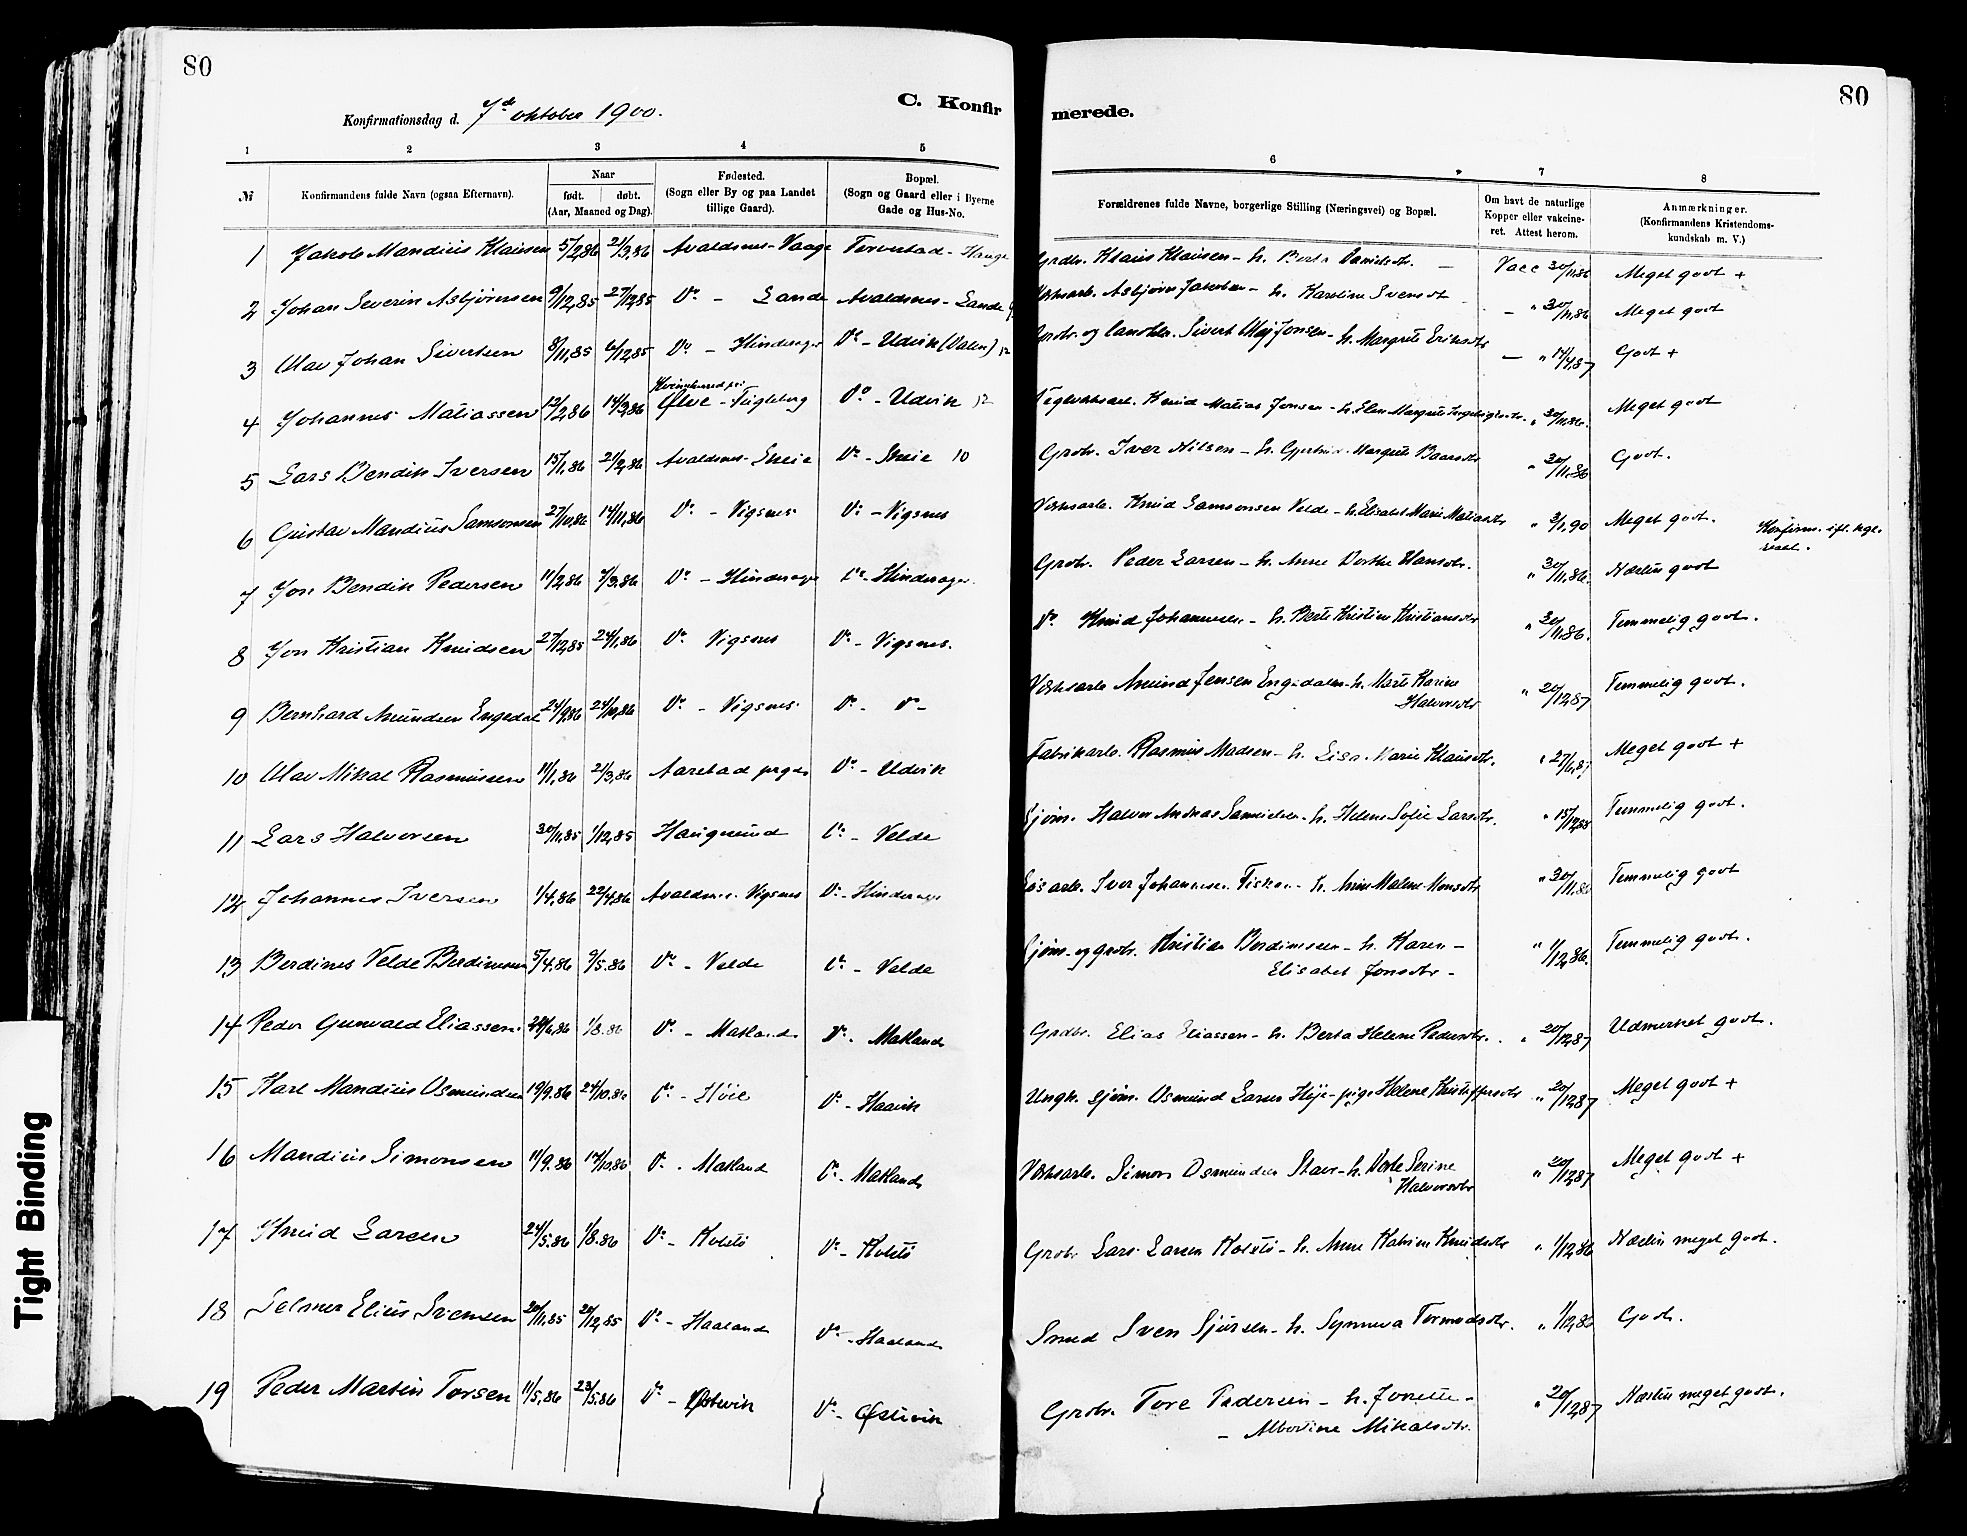 80
C. Konfir
merede.
80
Konfirmationsdag d. 7de oktober 1900.
1 2 3 4 5 6 7 8
№
Konfirmandens fulde Navn (ogsaa Efternavn).
Naar
født. døbt.
(Aar, Maaned og Dag).
Fødested.
(Sogn eller By og paa Landet
tillige Gaard).
Bopæl.
(Sogn og Gaard eller i Byerne
Gade og Hus-No.
Forældrenes fulde Navne, borgerlige Stilling (Næringsvei) og Bopæl.
Om havt de naturlige
Kopper eller vakcine-
ret. Attest herom.
Anmærkninger.
(Konfirmandens Kristendoms-
kundskab m. V.)
1 Jakob Mandius Klausen 5/2,86 21/3,86 Avaldsnes - Vaage Torvestad - Hauge Grdbr. Klaus Klausen - h. Berta Danielsdtr. Vacc 30/11,86 Meget godt +
2 Johan Severin Asbjørnsen 9/12,85 27/12,85 Do - Sande Avaldsnes - Sande Asbjørn Jakobsen - h. Karoline Svensdtr. - " 30/11,86 Meget godt
3 Olav Johan Sivertsen 8/11,85 6/12,85 Do - Hinderager Do - Udvik (Valen) 12 Sivert Jonsen - h. Margrete Eriksdtr - " 14/4,87 Godt +
4 Johannes Matiassen 12/2,86 14/3,86 Ølve - Teigleberg Do - Udvik 12 Teglverksarb. Knud Matias Jonsen - h. Elen Margrete " 30/11,86. Meget godt
5 Lars Bendik Iversen 15/1,86 21/2,86 Avaldsnes - Skeie Do - Skeie 10 Grdbr. Iver Nilsen - h. Gjertrud Margrete Baardsdtr " 30/11,86 Godt.
6 Gustav Mandius Samsonsen 27/10,86 14/11,86 Do - Vigsnes Do - Vigsnes Verksarb. Knud Samsonsen Velde - h. Elisabet Marie Matiasdtr " 3/1,90 Meget godt. Konfirm. eft. kgl.
7 Jon Bendik Pedersen 11/2,86 7/3,86 Do - Hinderager Do - Hinderager. Grdbr. Peder Larsen - h. Anne Dorthe Hansdtr. " 30/11,86. Næsten godt
8 Jon Kristian Knudsen 27/12,85 24/1,86 Do Vigsnes Do - Vigsnes. Do Knud Johannesen - h. Berte Kristine Kristiansdtr " 30/11,86. Temmelig godt.
9 Bernhard Amundsen Engedal 24/9,86 24/10,86 Do - Vigsnes Do - Do - Verksarb Amund Jensen Engedalen - h. Marte Karine
Halvorsdtr " 20/12,87 Temmelig godt.
10 Olav Mikal Rasmussen 11/1,86 21/3,86 Aarstad prgd. Do - Udvik Fabrikarb. Rasmus Madsen - h. Lisa Marie Klausdtr. " 27/6,87 Meget godt +
11 Lars Halvorsen 30/11,85 1/12,85 Haugesund Do - Velde Sjøm. Halvor Andreas Samuelsen - h. Helene Sofie Larsdtr. " 15/12,88 Temmelig godt.
12 Johannes Iversen 1/4,86 22/4,86 Avaldsnes. Vigsnes Do - Hinderager Løsarb. Iver Johannesen Fisken - h. Anne Malene Monsdtr " 30/11,86 Temmelig godt
13 Berdines Velde Berdinesen 5/4.86 9/5.86 Do - Velde Do - Velde Sjøm. og grdbr. Kristian Berdinessen - h. Karen -
Elisabet Jonsdtr - " 1/12,86. Temmelig godt.
14 Peder Gunvald Eliassen 24/6,86 1/8.86 Do - Matland Do - Matland Grdbr. Elias Eliassen - h. Berta Helene Pedersdtr. " 20/12,87 Udmerket godt.
15 Karl Mandius Osmundsen 19/9.86 24/10.86 Do - Høie Do - Haavik Ungk. sjøm. Osmund Larsen Høje - pige Helene Kristoffersdtr " 20/12,87 Meget godt +
16 Mandius Simonsen 11/9.86 17/10.86 Do. Matland Do - Matland Verksarb. Simon Osmundsen Stavr - h. Dorte Serine
Halvorsdtr " 20/12,87 Meget godt +
17 Knud Larsen 24/5.86 1/8.86 Do - Kolstø Do - Kolstø Grdbr. Lars Larsen Kolstø - h. Anne Katrine Knudsdtr " 1/12,86 Næsten meget godt.
18 Selmer Elius Svensen 20/11,85 20/12,85 Do - Haaland Do - Haaland Smed Sven Sjursen - h. Synneva Tormodsdtr. " 1/12,86 Godt.
19 Peder Martin Torsen 11/5,86 23/5.86 Do - Østevik Do - Østevik Grdbr. Tore Pedersen - h. Jonette -
- Albertine Mikalsdtr. " 20/12,87 Næsten meget godt.
Tight Binding